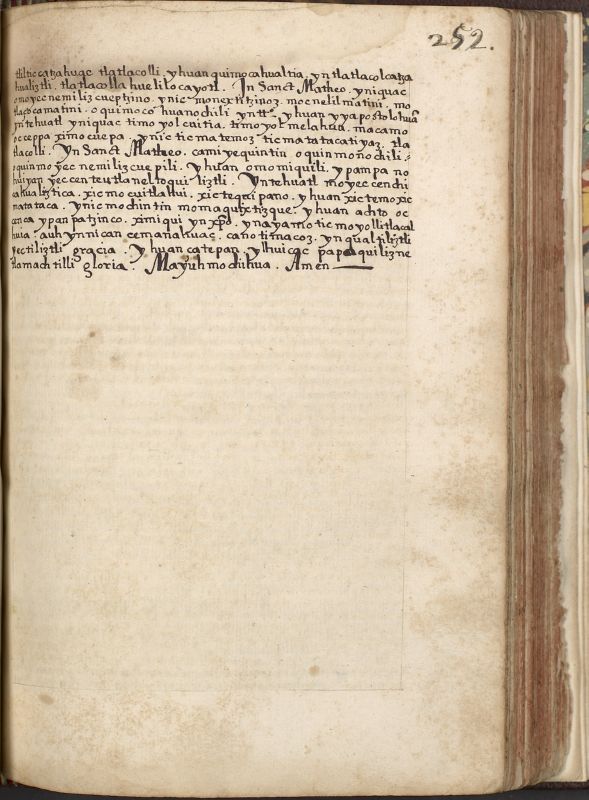 252.
tliltic catzahuac tlatlacolli. yhuan quimocahualtia, yn tlatlacolcatza
hualiztli. tlatlacolla huelilocayotl. In Sanct Matheo. yniquac
omoyecnemilizcueptzino. ynic monextitzinoz. mocnelilmatini. mo
tlaçocamatini. oquimocohuanochili yn tto. yhuan yyapostolohuan
yntehuatl yniquac timoyolcuitia, timoyolmelahua. macamo
occeppa ximocuepa. ynic ticmatemoz ticmatatacatiyaz. tla
tlacolli. Yn Sanct Matheo. camiyequintin oquinmonochili.
oquinmoyecnemilizcuepili. yhuan omomiquili. ypampa no
huiyan yecenteutlaneltoquiliztli. Yntehuatl moyecenchi
cahualiztica. xicmocuitlahui. xictequipano. yhuan xictemo xic
matataca. ynic mochintin momaquixtizque. yhuan achto oc
cenca ypanpatzinco. ximiqui yn xpo. ynayamo ticmoyollitlacal
huia auh yn nican cemanahuac. canotimacoz. yn qualtiliztli
yectiliztli gracia. Yhuan catepan. ylhuicac papaquilizne
tlamachtilli gloria. Mayuhmochihua. Amen